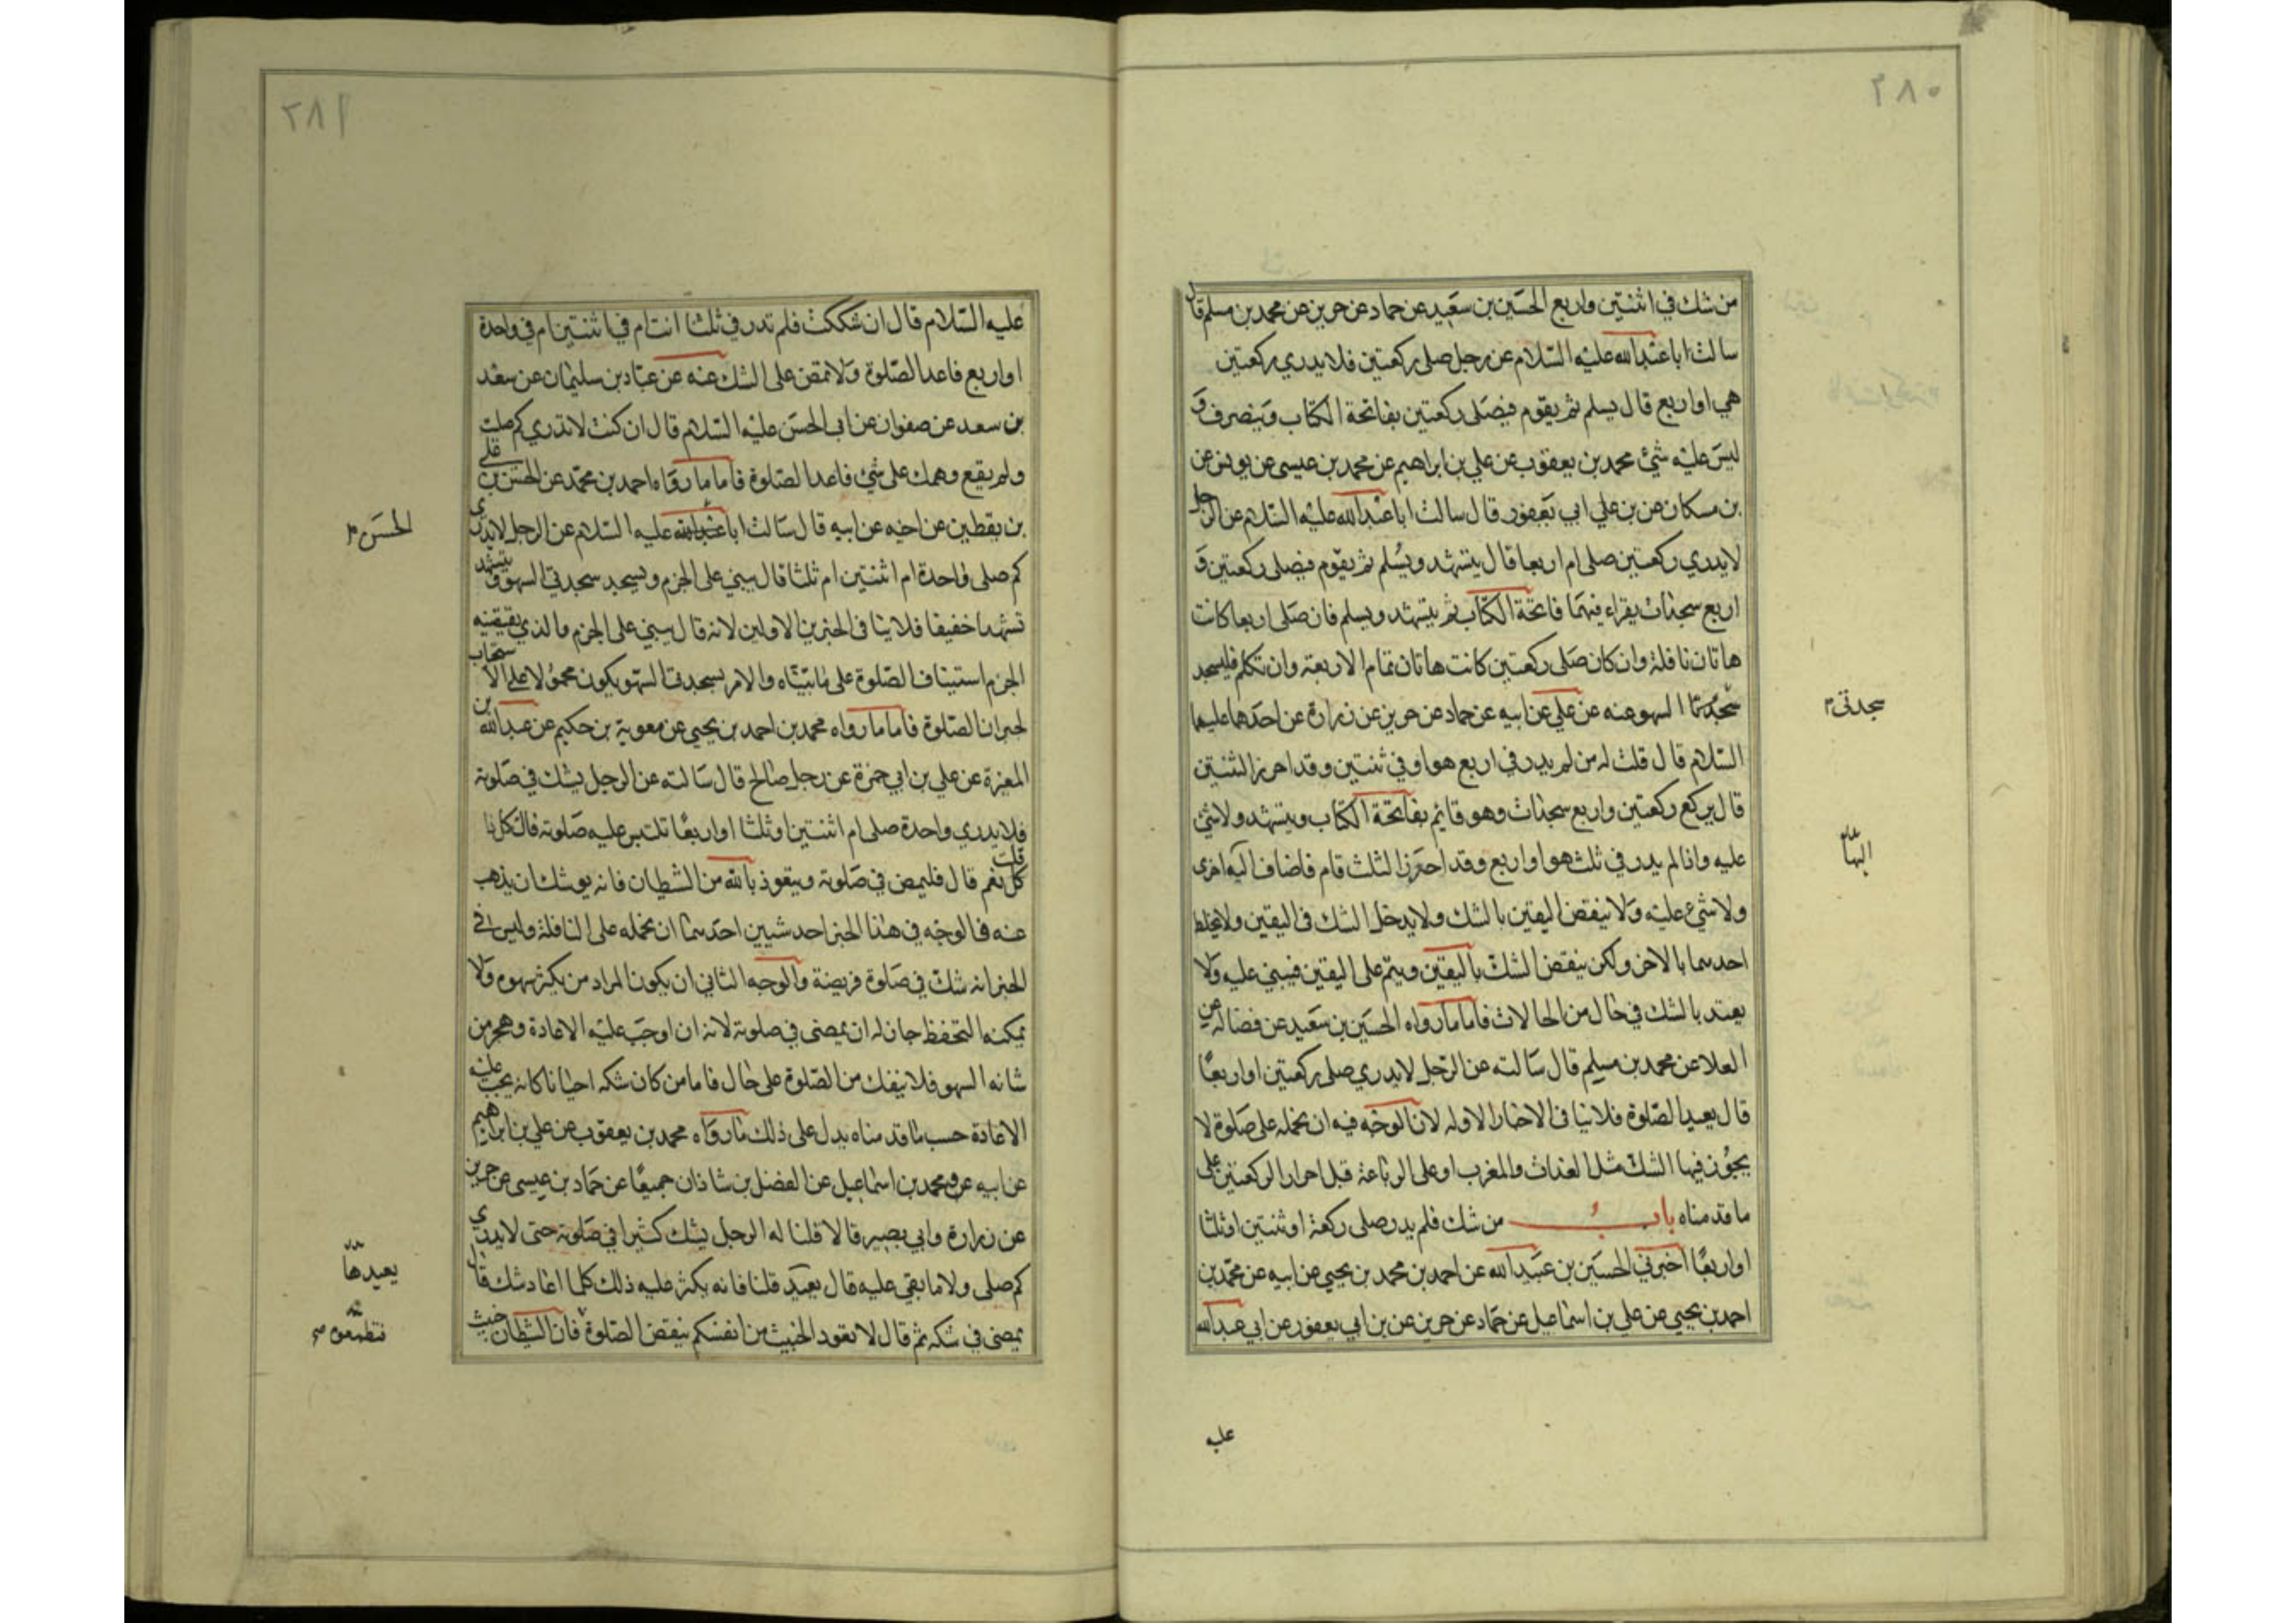 ٢٨٠
من شك في اثنتين واربع الحسين بن سعيد عن حماد عن حريز عن محمد بن مسلم قال
سالت ابا عبدالله عليه السلام عن رجل صلى ركعتين فلا يدري ركعتين
هي او اربع قال يسلم ثم يقوم فيصلى ركعتين بفاتحة الكتاب وينصرف و
ليس عليه شئ محمد بن يعقوب عن علي بن ابراهيم عن محمد بن عيسى عن يونس عن
بن مسكان عن بن علي ابي يعفور قال سالت ابا عبدالله عليه السلام عن الرجل
لا يدري ركعتين صلى ام اربعا قال يتشهد ويسلم ثم يقوم فيصلى ركعتين و
اربع سجدات يقراء فيهما فاتحة الكتاب ثم يتشهد ويسلم فان صلى اربعا كانت
هاتان نافلة وان كان صلى ركعتين كانت هاتان تمام الاربعة وان تكلم فليسجد
سجدتا السهو عنه عن علي عن ابيه عن حماد عن حريز عن زرارة عن احدهما عليهما
سجدتى
السلام قال قلت له من لم يدر في اربع هو او في ثنتين وقد احرز الثنتين
قال يركع ركعتين واربع سجدات وهو قايم بفاتحة الكتاب ويتشهد ولا شئ
عليه واذا لم يدر في ثلث هو او اربع وقد احرز الثلث قام فاضاف اليه اخرى
اليها
ولا شئ عليه ولا ينقض اليقين بالشك ولا يدخل الشك في اليقين ولا يخلط
احدهما بالاخر ولكن ينقض الشك باليقين ويتم على اليقين فيبني عليه ولا
يعتد بالشك في حال من الحالات فاما ما رواه الحسين بن سعيد عن فضالة عن
العلا عن محمد بن مسلم قال سالته عن الرجل لا يدري صلى ركعتين او اربعا
قال يعيد الصلوة فلا ينافي الاخبار الاوله لان الوجه فيه ان نحمله على صلوة لا
يجوز فيها الشك مثل الغداة والمغرب او على الرباعة قبل احراز الركعتين على
ما قدمناه باب من شك فلم يدر صلى ركعة او ثنتين او ثلثا
او اربعا اخبرني الحسين بن عبيد الله عن احمد بن محمد بن يحيى عن ابيه عن محمد بن
احمد بن يحيى عن علي بن اسماعيل عن حماد عن حريز عن بن ابي يعفور عن ابي عبدالله
عليه
٢٨١
عليه السلام قال ان شككت فلم تدر في ثلث انت ام في اثنتين ام في واحدة
او اربع فاعد الصلوة ولا تمض على الشك عنه عن عباد بن سليمان عن سعد
بن سعد عن صفوان عن ابي الحسن عليه السلام قال ان كنت لا تدري كم صليت
ولم يقع وهمك على شئ فاعد الصلوة فاما ما رواه احمد بن محمد عن الحسن بن علي
بن يقطين عن اخيه عن ابيه قال سالت ابا عبدالله عليه السلام عن الرجل لا يدرى
الحسن
كم صلى واحدة ام اثنتين ام ثلثا قال يبني على الجزم ويسجد سجدتي السهو ويتشهد
تشهدا خفيفا فلا ينافى الخبرين الاولين لانه قال يبني على الجزم والذي يقتضيه
الجزم استيناف الصلوة على ما بيناه والامر بسجدتي السهو يكون محمولا على الاستحباب
لجبران الصلوة فاما ما رواه محمد بن احمد بن يحيى عن معوية بن حكيم عن عبدالله بن
المغيرة عن علي بن ابي حمزة عن رجل صالح قال سالته عن الرجل يشك في صلوته
فلا يدري واحدة صلى ام اثنتين او ثلثا او اربعا تلتبس عليه صلوته قال كل ذا
قلت نعم قال فليمض في صلوته ويتعوذ بالله من الشطيان فانه يوشك ان يذهب
عنه فالوجه في هذا الخبر احد شيين احدهما ان نحمله على النافلة وليس في
الخبر انه شك في صلوة فريضة والوجه الثاني ان يكون المراد من يكثر سهوه ولا
يمكنه التحفظ جاز له ان يمضى في صلوته لانه ان اوجب عليه الاعادة وهو من
شانه السهو فلا ينفك من الصلوة على حال فاما من كان شكه احيانا كانه يجب عليه
الاعادة حسب ما قدمناه يدل على ذلك ما رواه محمد بن يعقوب عن علي بن ابراهيم
عن ابيه عن محمد بن اسماعيل عن الفضل بن شاذان جميعا عن حماد بن عيسى عن حريز
عن زرارة وابي بصير قالا قلنا له الرجل يشك كثيرا في صلوته حتى لا يدري
كم صلى ولا ما بقي عليه قال يعيد قلنا فانه يكثر عليه ذلك كلما اعاد شك قال
يعيدها
يمضى في شكه ثم قال لا تعود الخبيث من انفسكم بنقض الصلوة فان الشطان خبيث
فتطمعوه